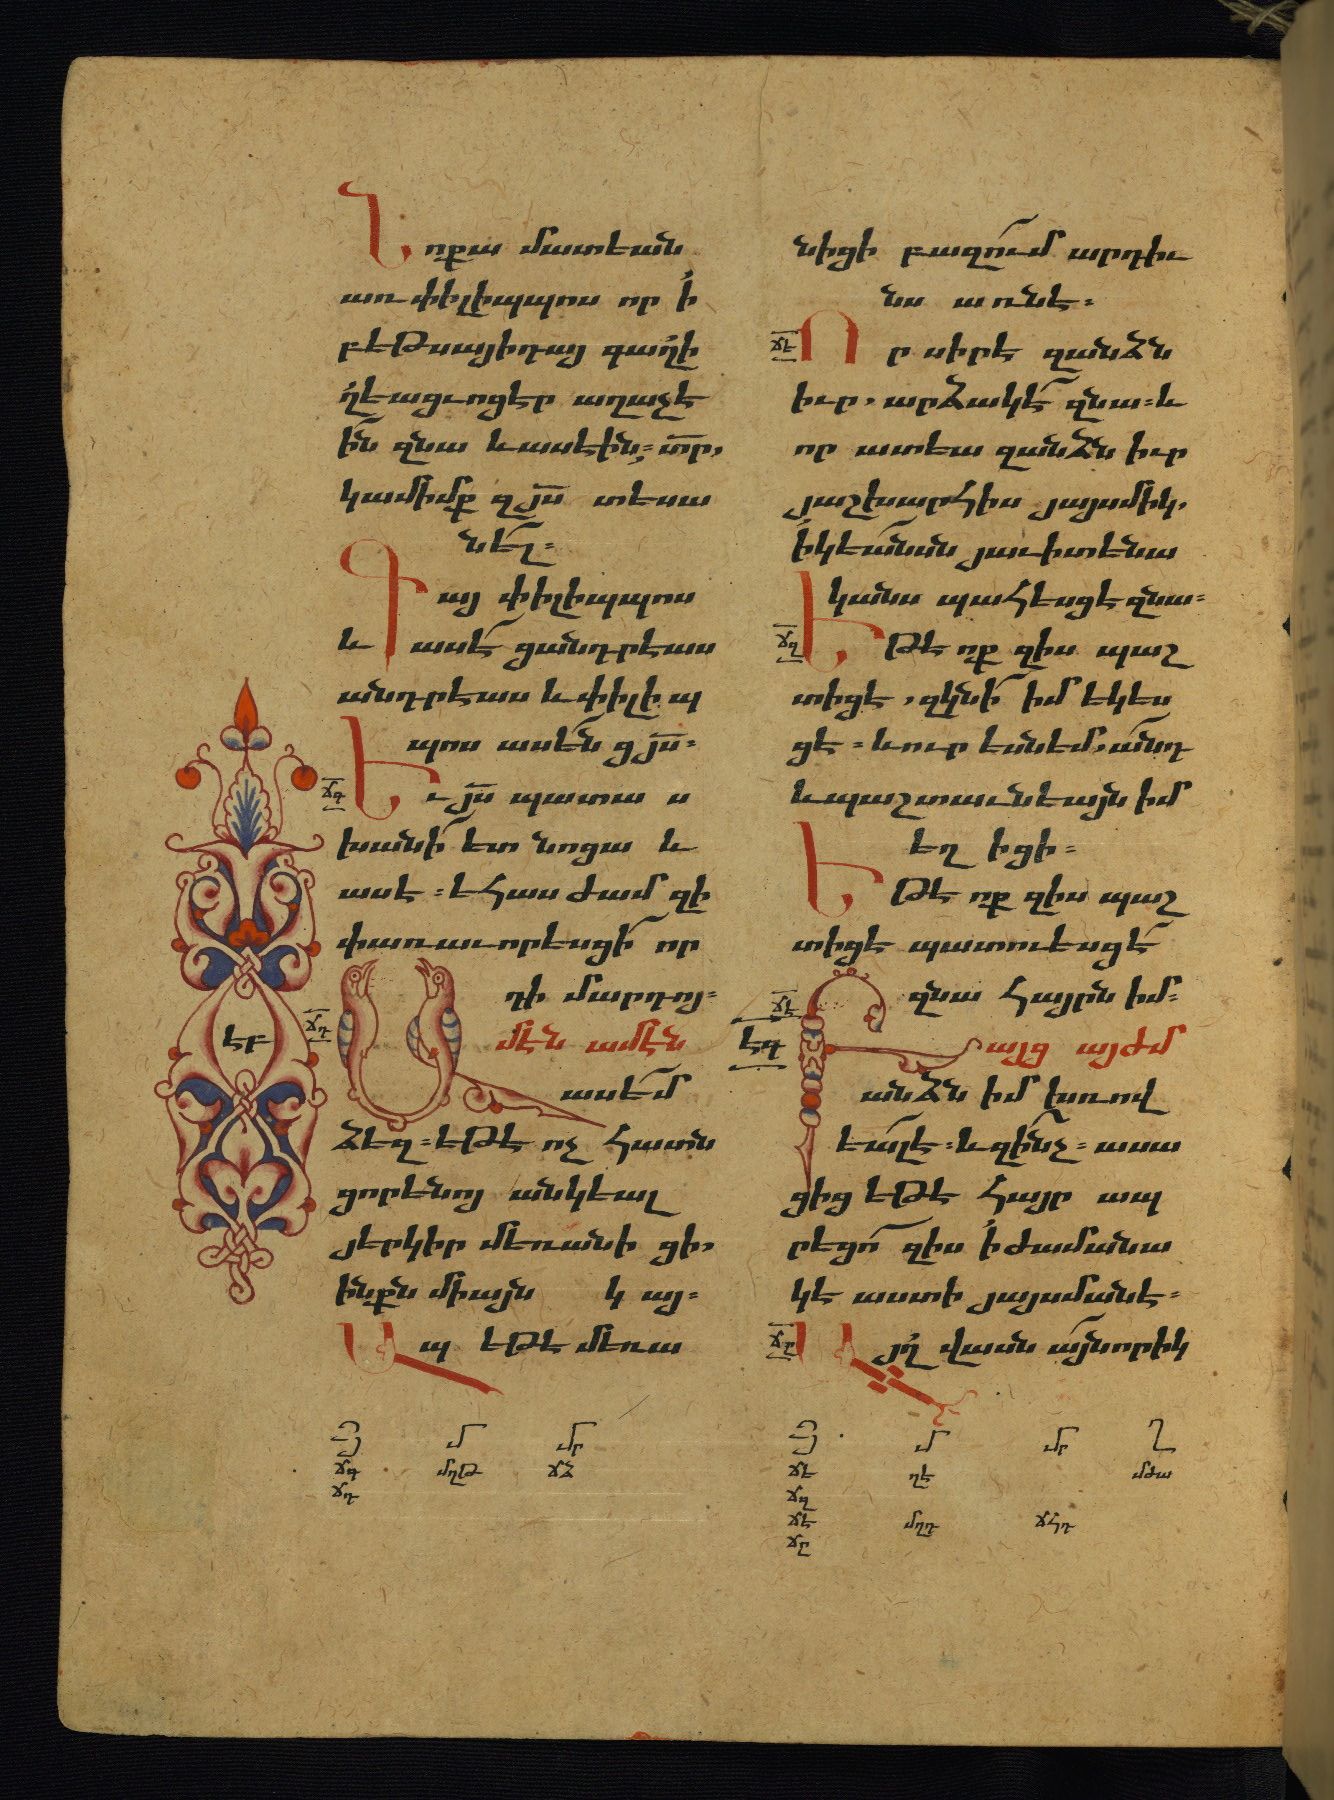 Նոքա մատեան
առ փիլիպպոս որ ՛ի
բէթսայիդայ գաղի
ղեացւոցէր աղաչէ
ին զնա և ասէին. տր,
կամիմք զյս տեսա
նել.
Գայ փիլիպպոս
և ասէ ցանդրէաս
անդրէաս և փիլիպ
պոս ասեն ցյս.
ճգ
Եւ յս պատաս
խանի ետ նոցա և
ասէ. եհաս ժամ զի
փառաւորեսցի որ
դի մարդոյ.
ճդ
էբ
Ամէն ամէն
ասեմ
ձեզ. եթէ ոչ հատն
ցորենոյ անկեալ
յերկիր մեռանիցի,
ինքն միայն կայ.
Ապ եթէ մեռա
նիցի բազում արդիւ
նս առնէ.
ճե
Որ սիրէ զանձն
իւր, արձակէ զնա. և
որ ատեա զանձն իւր
յաշխարհիս յայսմիկ,
՛ի կեանսն յաւիտենա
կանս պահեսցէ զնա.
ճզ
Եթէ ոք զիս պաշ
տիցէ, զկնի իմ եկես
ցէ. և ուր եսն եմ, անդ
և պաշտաւնեայն իմ
եղիցի.
Եթէ ոք զիս պաշ
տիցէ պատուեսցէ
զնա հայրն իմ.
ճէ
էգ
Բայց այժմ
անձն իմ խռով
եալ է. և զինչ. ասա
ցից եթէ հայր ապ
րեցո զիս ՛ի ժամանա
կէ աստի յայսմանէ.
ճը
Այղ վասն այնորիկ
Յ մ մր
ճգ մղթ ճձ
ճդ
Յ մ մր Ղ
ճե ղէ մժա
ճզ
ճէ մղդ ճհդ
ճը